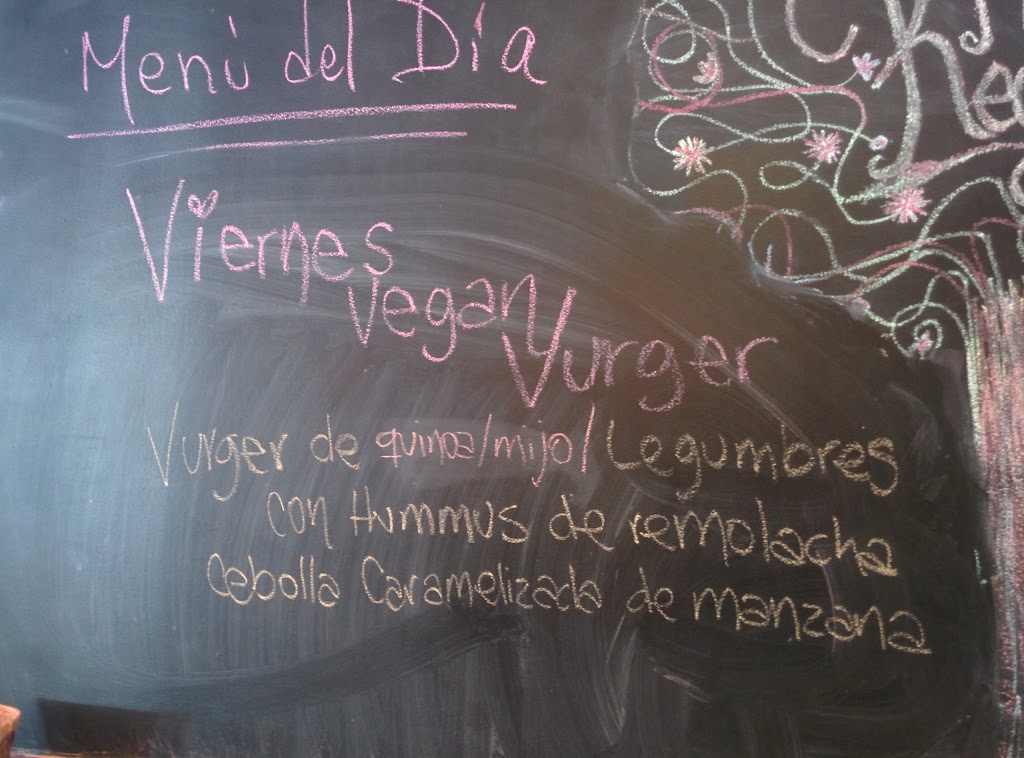 Menú del Día
Viernes
vegan
Vurger
Vurger de quinoa/mijo/Legumbres
con Hummus de remolacha
Cebolla Caramelizada de manzana